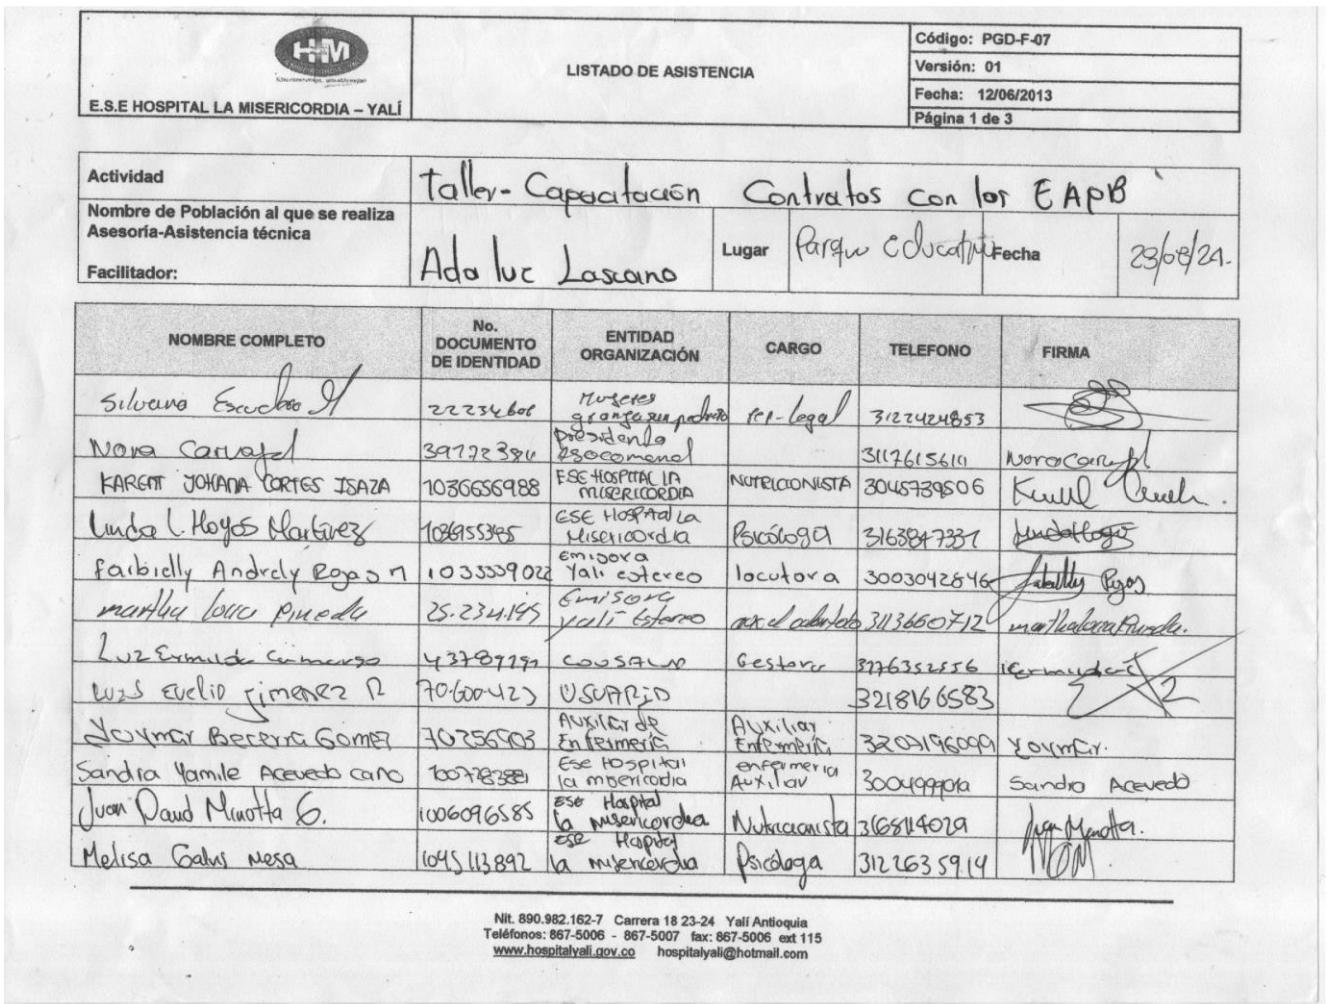 HM
E.S.E HOSPITAL LA MISERICORDIA – YALÍ
LISTADO DE ASISTENCIA
Código: PGD-F-07
Versión: 01
Fecha: 12/06/2013
Página 1 de 3
Actividad
Taller- Capacitación Contratos con las EAPB
Nombre de Población al que se realiza
Asesoría-Asistencia técnica
Facilitador:
Ada luc Lascano
Lugar
Parque Educativo
Fecha
NOMBRE COMPLETO
No.
DOCUMENTO
DE IDENTIDAD
ENTIDAD
ORGANIZACIÓN
CARGO
TELEFONO
FIRMA
Silvana
Mujeres
rep-legal 3122424853
Nora Carvajal
presidenta
asocomunal
Nora Carvajal
KAREN JOHANA CORTES ISAZA 1036656988
ESE HOSPITAL LA
MISERICORDIA
NUTRICIONISTA 3045739506
Linda L. Hoyos Martinez
ESE HOSPITAL La
Misericordia
Psicóloga 3163847331 Linda Hoyos
Farbielly Andrely Rojas
Emisora
Yali estereo
locutora 3003042846
martha Pineda
Emisora
yali Estereo
3113660712
Luz Ermilda Camargo
Gestora 3176352556
Luis Evelio Jimenez R 70.600.423 USUARIO 3218166583
Yoymar Becerra Gomez 70256903
Auxiliar de
Enfermería
Auxiliar
Enfermería
3207196099 Yoymar.
Sandra Yamile Acevedo cano
Ese Hospital
la misericordia
enfermeria
Auxiliar
Sandra Acevedo
Juan David Minotta G. 1006096585
ESE Hospital
la misericordia
Nutricionista 3168114029 Juan Minotta.
Melisa Galvis Mesa 1045113892
ESE Hospital
la misericordia
Psicóloga 3122635914
Nit. 890.982.162-7 Carrera 18 23-24 Yalí Antioquia
Teléfonos: 867-5006 - 867-5007 fax: 867-5006 ext 115
www.hospitalyali.gov.co hospitalyali@hotmail.com